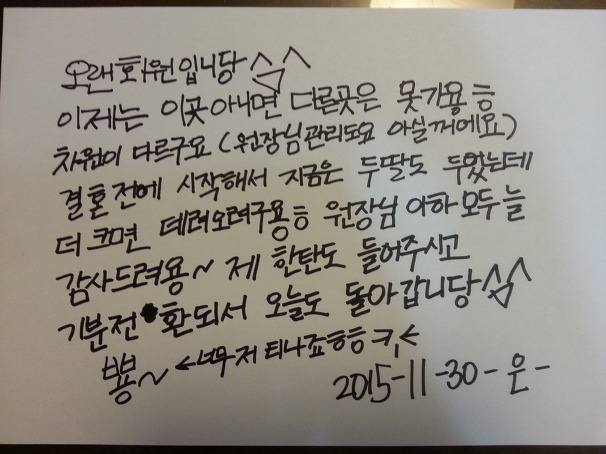 오랜회원입니당 ^ㅅ^
이제는 이곳아니면 다른곳은 못가용ㅎ
차원이 다르구요 (원장님관리도요 아실꺼에요)
결혼전에 시작해서 지금은 두딸도 두었는데
더 크면 데려오려구용ㅎ 원장님 이하 모두 늘
감사드려용~ 제 한탄도 들어주시고
기분전환되서 오늘도 돌아갑니당^^
뿅~ ←너무저 티나죠ㅎㅎ
2015-11-30-은-